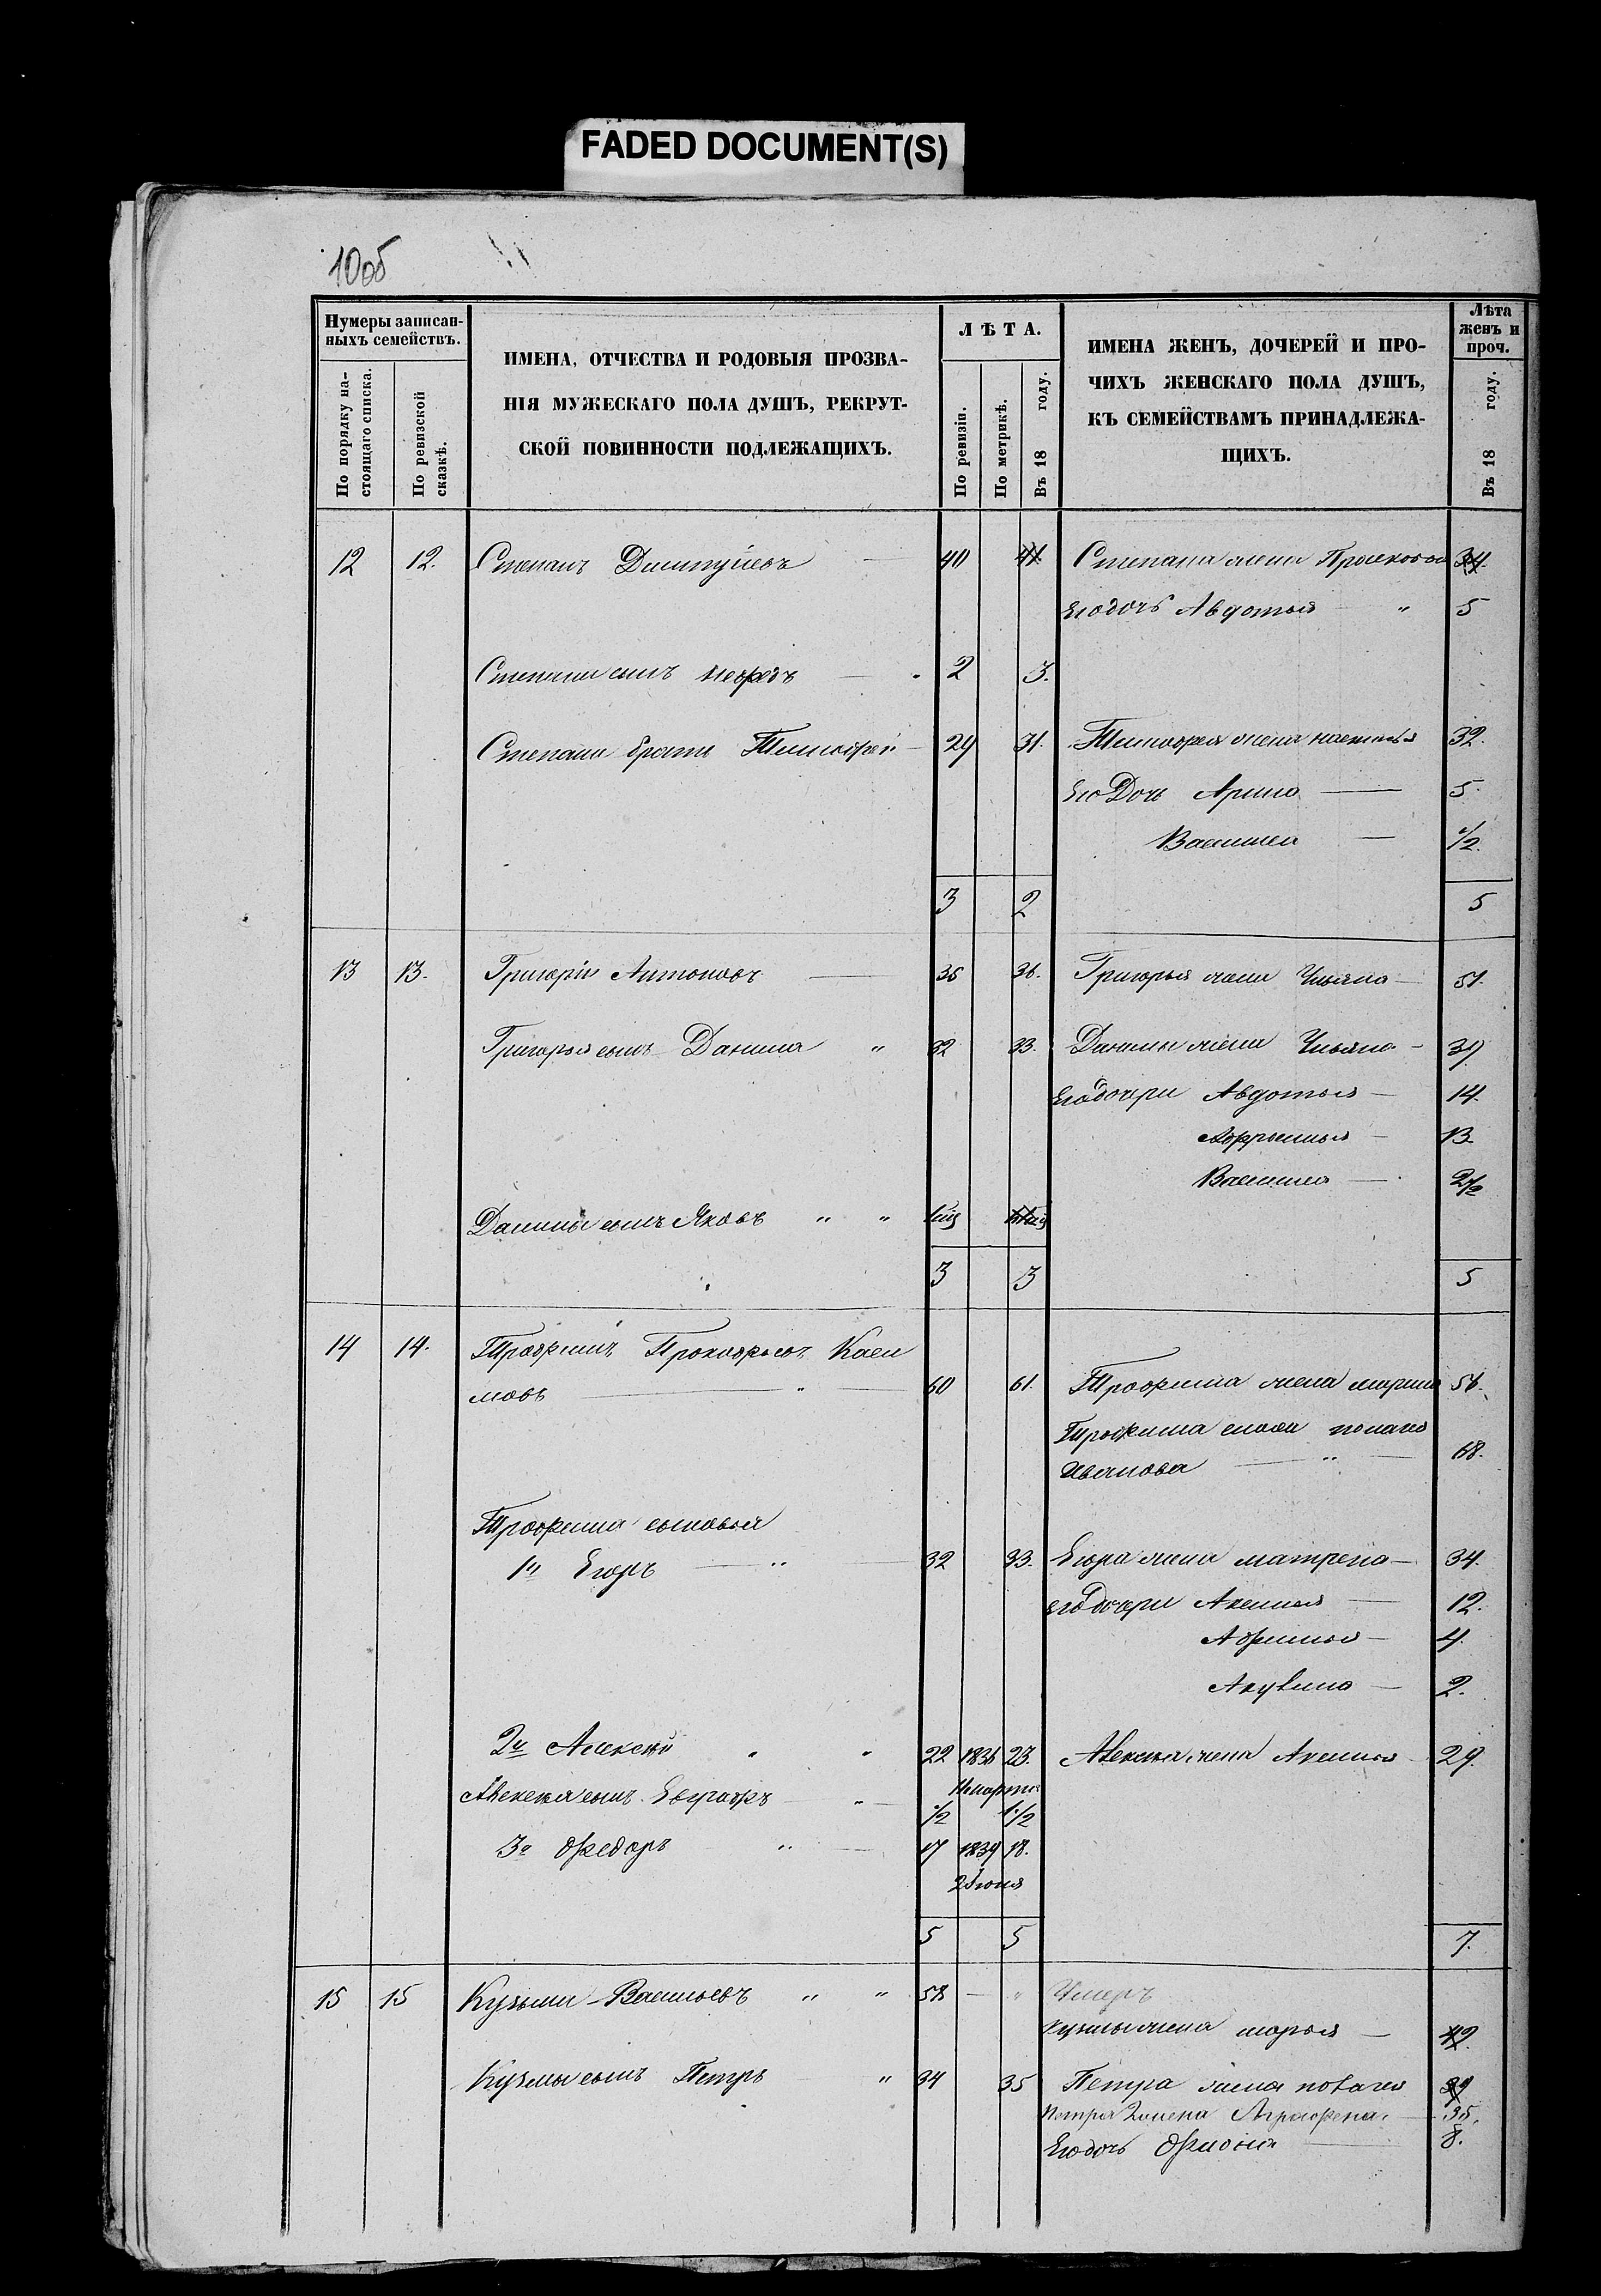 FADED DOCUMENT(S)
10об
Нумеры записан-
ныхъ семействъ.
По порядку на-
стоящаго списка.
По ревизской
сказкѣ.
ИМЕНА, ОТЧЕСТВА И РОДОВЫЯ ПРОЗВА-
НІЯ МУЖЕСКАГО ПОЛА ДУШЪ, РЕКРУТ-
СКОЙ ПОВИННОСТИ ПОДЛЕЖАЩИХЪ.
ЛѢТА.
По ревизіи.
По метрикѣ.
Въ 18 году.
ИМЕНА ЖЕНЪ, ДОЧЕРЕЙ И ПРО-
ЧИХЪ ЖЕНСКАГО ПОЛА ДУШЪ,
КЪ СЕМЕЙСТВАМЪ ПРИНАДЛЕЖА-
ЩИХЪ.
Лѣта
женъ и
проч.
Въ 18 году.
12 12. Степанъ 40 41 Степана жена Прасковья 34.
Его дочь Авдотья " 5
Степана сынъ 2 3.
Степана братъ Тимофей 29 31. Тимофея жена настасья 32.
Его Дочь Арина 5.
Василиса 1/2.
3 2 5
13 13. Григорій Антоновъ 35 36. Григорья жена Ульяна 51.
Григорья сынъ Данила " 32 33. Данилы жена Ульяна 37
Его дочери Авдотья 14.
Афросинья 13
Василиса 2 1/2
Данилы сынъ Яковъ " "
3 3 5
14 14. Трофимъ Прокофьевъ Каси
мовъ " 60 61. Трофима жена марина 56.
Трофима сноха пелагея
Иванова " 68.
Трофима сыновья
1й Егоръ " 32 33. Егора жена матрена 34.
его дочери Аксинья 12.
Афимья 4.
Акулина 2.
2й Алексѣй " " 22 1835 23. Алексѣя жена Аксинья 29.
марта
Алексѣя сынъ Евграфъ " 1/2 1 1/2
3й Федоръ " 17 1839 18.
2 Іюня
5 5 7.
15 15 Кузьма Васильевъ " " 58 " Умеръ
Кузьмы жена марья 42.
Кузьмы сынъ Петръ " 34 35 Петра жена пелагея 39
Петра 2 жена Аграфена. 35.
Его дочь 8.